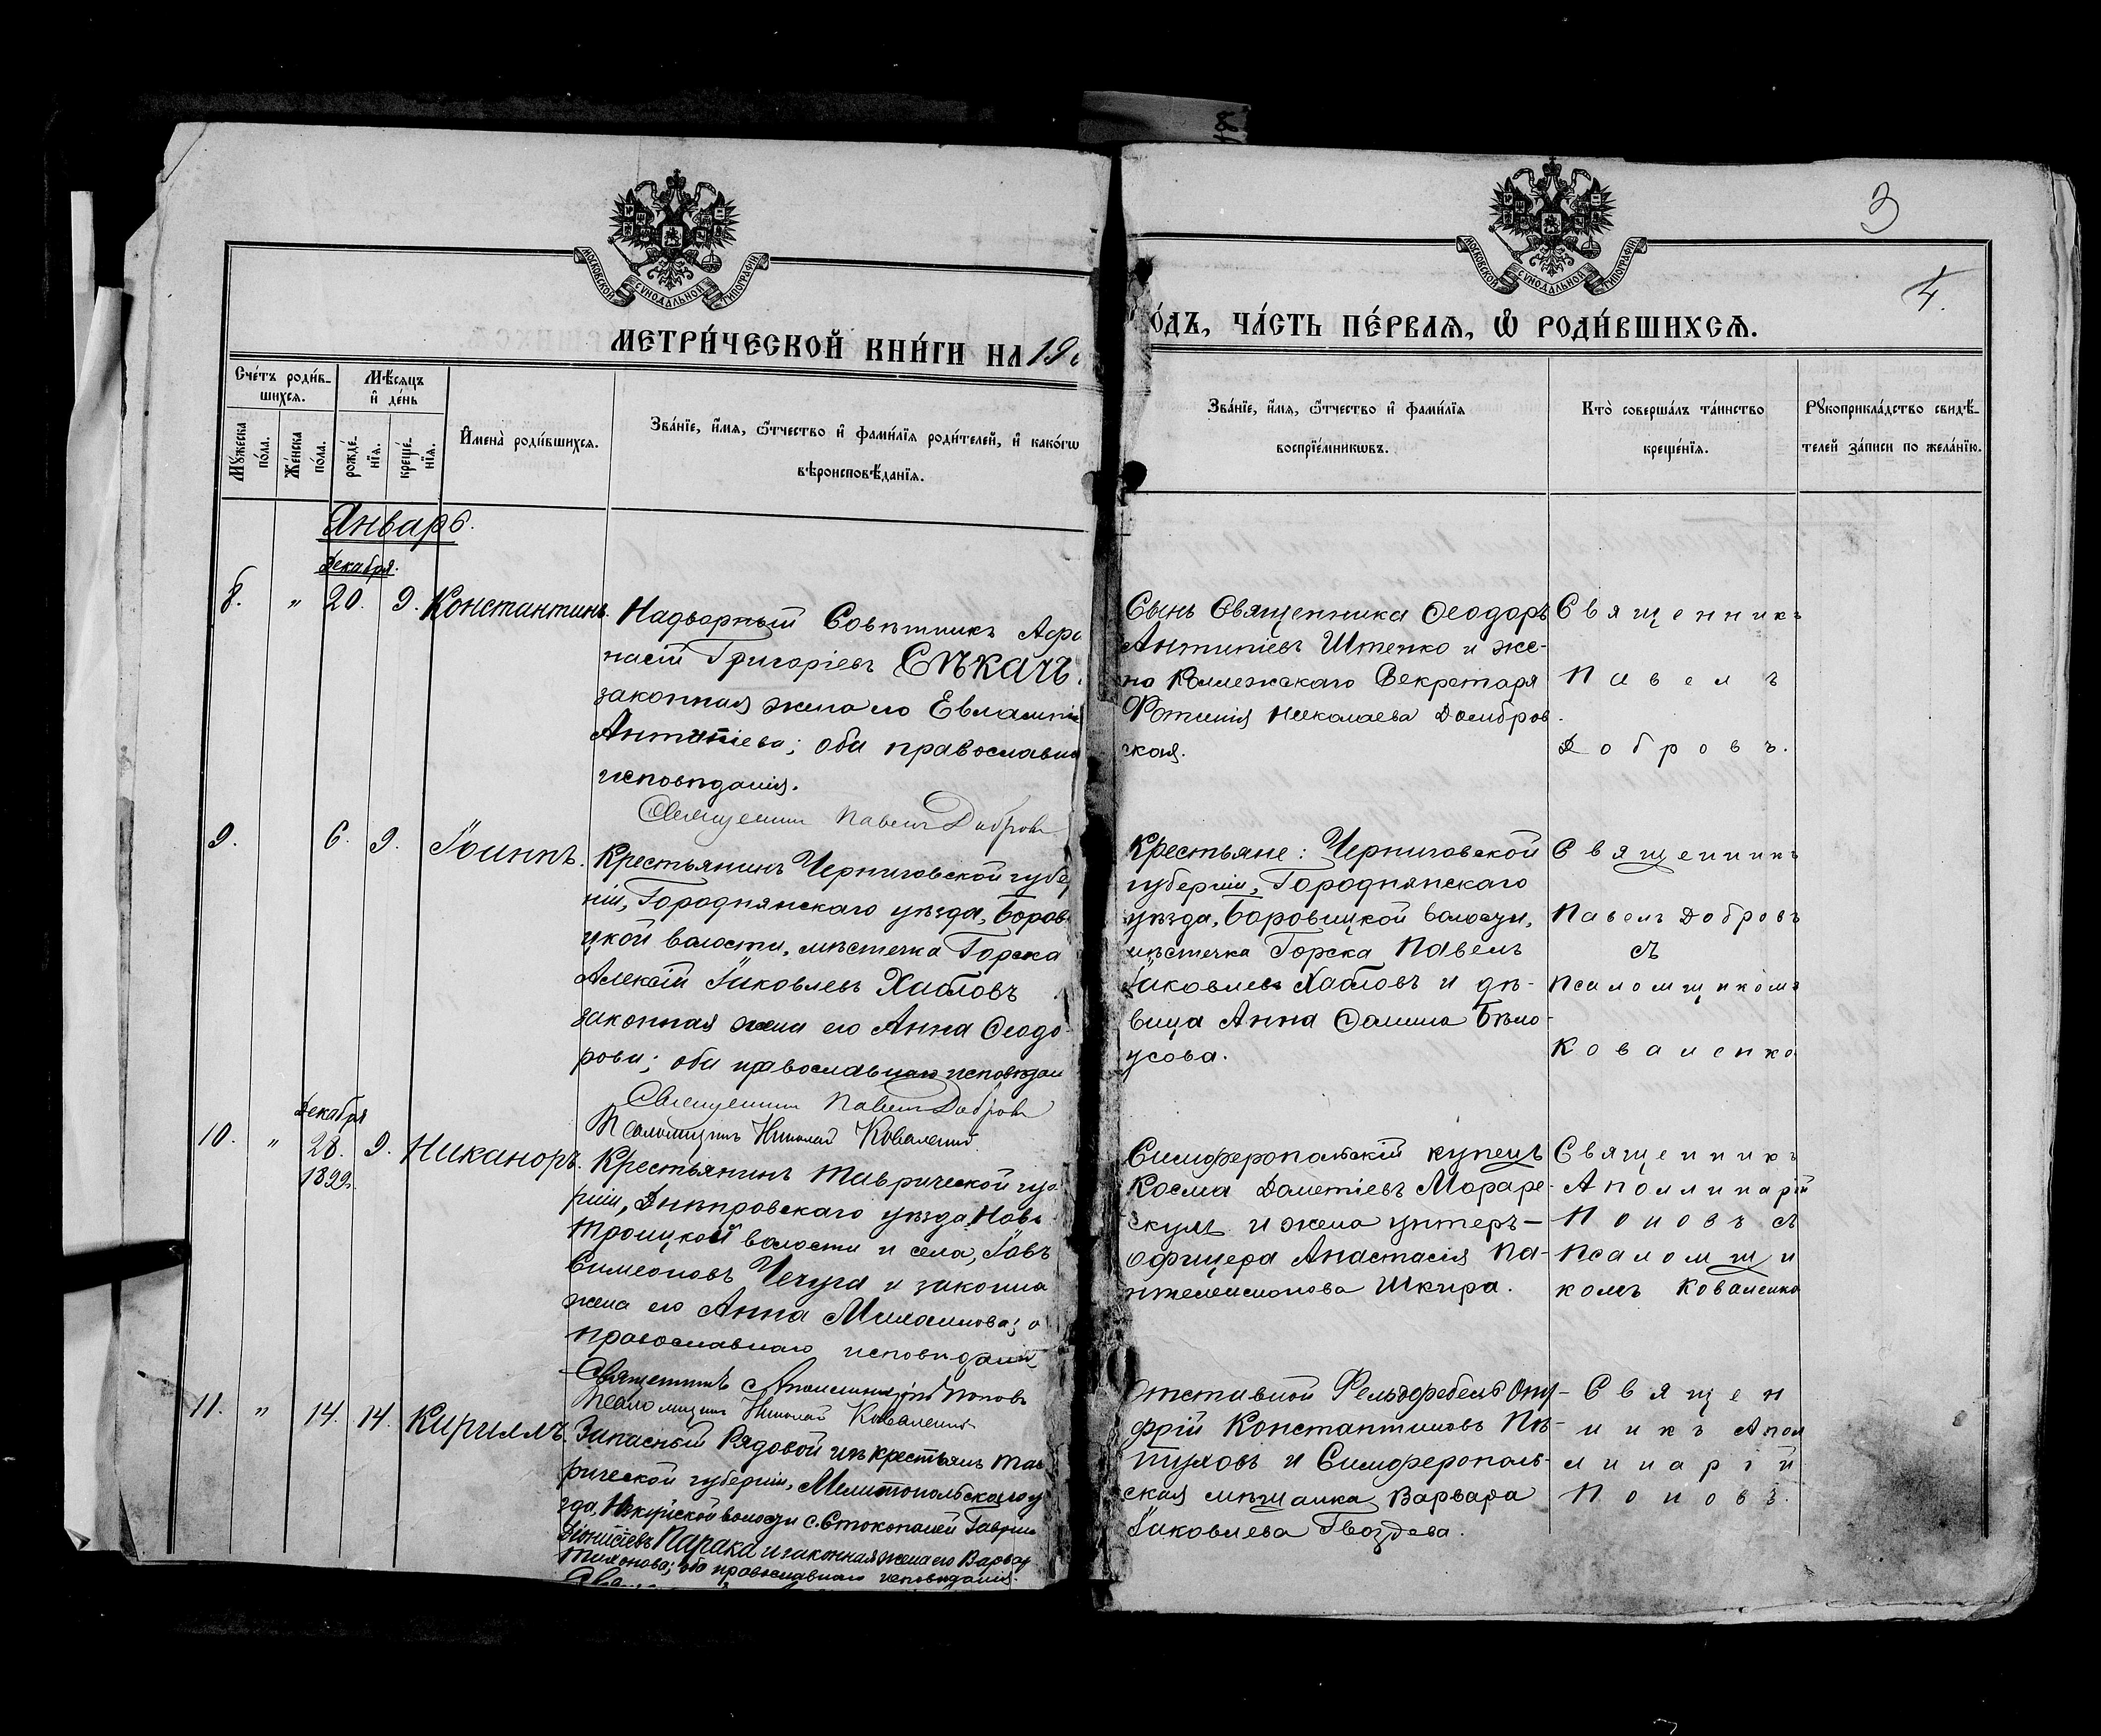 3
4.
МОСКОВСКОЙ СѴНОДАЛЬНОЙ ТИПОГРАФІИ
МОСКОВСКОЙ СѴНОДАЛЬНОЙ ТИПОГРАФІИ
МЕТРИ́ЧЕСКОЙ КНИ́ГИ НА 19
О́ДЪ, ЧА́СТЬ ПЕ́РВАѦ, Ѽ РОДИ́ВШИХСѦ.
Сче́тъ роди́в-
шихсѧ.
Мѣ́сѧцъ
и҆ де́нь
Мꙋ́жеска
по́ла.
Же́нска
по́ла.
рожде́-
нїѧ.
креще́-
нїѧ.
И҆мена̀ роди́вшихсѧ.
Зва́нїе, и҆́мѧ, ѻ҆́тчество и҆ фами́лїѧ роди́телей, и҆ како́гѡ
вѣроисповѣ́данїѧ.
Зва́нїе, и҆́мѧ, ѻ҆́тчество и҆ фами́лїѧ
воспрїе́мникѡвъ.
Кто̀ соверша́лъ та́инство
креще́нїѧ.
Рꙋкоприкла́дство свидѣ́-
телей за́писи по жела́нїю.
Январь.
Декабря.
8. " 20. 9. Константинъ.
Надворный Совѣтникъ Афа
насій Григоріевъ Сѣкачъ
законная жена его Евлампія
Антипіева; оба православна
исповѣданія.
Священникъ Павелъ Добровъ
Сынъ Священника Ѳеодоръ
Антипіевъ Штепко и же-
на Коллежскаго Секретаря
Фотинія Николаева Домбров-
ская.
Священникъ
Павелъ
Добровъ.
9. 6. 9. Іоаннъ.
Крестьянинъ Черниговской губер
ніи, Городнянскаго уѣзда, Боров
ицкой волости, мѣстечка Горска
Алексій Іаковлевъ Хабловъ
законная жена его Анна Ѳеодо-
рова; оба православнаго исповѣдан
Священникъ Павелъ Добровъ
Псаломщикъ Николай Коваленко
Крестьяне: Черниговской
губерніи, Городнянскаго
уѣзда, Боровицкой волости,
мѣстечка Горска Павелъ
Іаковлевъ Хабловъ и дѣ-
вица Анна Ѳомина Бѣло-
усова.
Священникъ
Павелъ Добровъ
съ
Псаломщикомъ
Коваленко
Декабря
10. " 28. 9. Никаноръ.
1899.
Крестьянинъ Таврической гу
рніи, Днѣпровскаго уѣзда, Ново
троицкой волости и села, Іовъ
Симеоновъ Чечуга и законна
жена его Анна Михаилова; о
православнаго исповѣданія
Священникъ Аполлинарій Поповъ
Псаломщикъ Николай Коваленко
Симферопольскій купецъ
Косма Дометіевъ Мораре-
скулъ и жена унтеръ-
офицера Анастасія Па-
нтелеимонова Шкира.
Священникъ
Аполлинарій
Поповъ съ
Псаломщи
комъ Коваленко
11. " 14. 14. Кириллъ.
Запасный Рядовой изъ крестьянъ Тав
рической губерніи, Мелитопольскаго у
ѣзда, волости с. Стокопаней Гаврии
Діонисіевъ Парака и законная жена его Варвар
Тихонова; оба православнаго исповѣданія.
Отставной Фельдфебель Ону-
фрій Константиновъ Пѣ-
туховъ и Симферополь-
ская мѣщанка Варвара
Іаковлева Гвоздева.
Священ
никъ Апол
линарій
Поповъ.